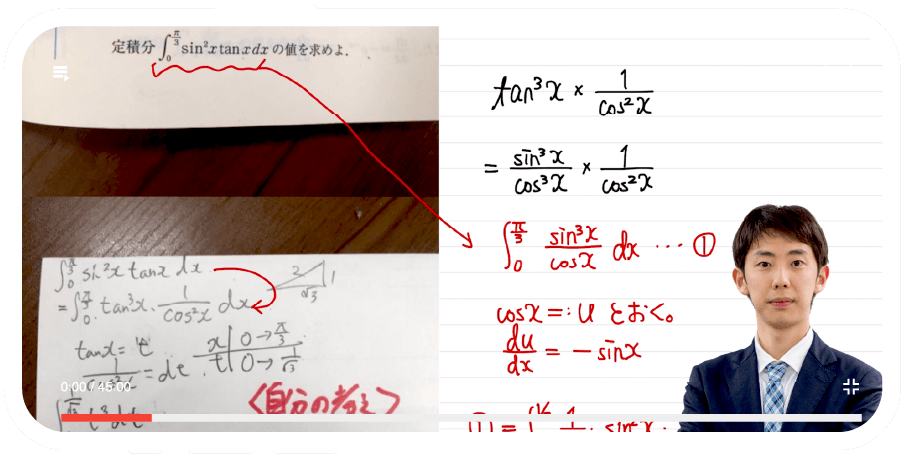 定積分∫₀^{π/3} sin²x tanx dx の値を求めよ.
∫₀^{π/3} sin²x tanx dx
= ∫₀^{π/3} tan³x · 1/cos²x dx
2 1 √3
tanx = t
x | 0 → π/3
t | 0 → 1/√3
= dt
0:00 / 45:00
<自分の考え>
t³dt
tan³x × 1/cos²x
= sin³x/cos³x × 1/cos²x
∫₀^{π/3} sin³x/cosx dx … ①
cosx =: u とおく。
du/dx = − sinx